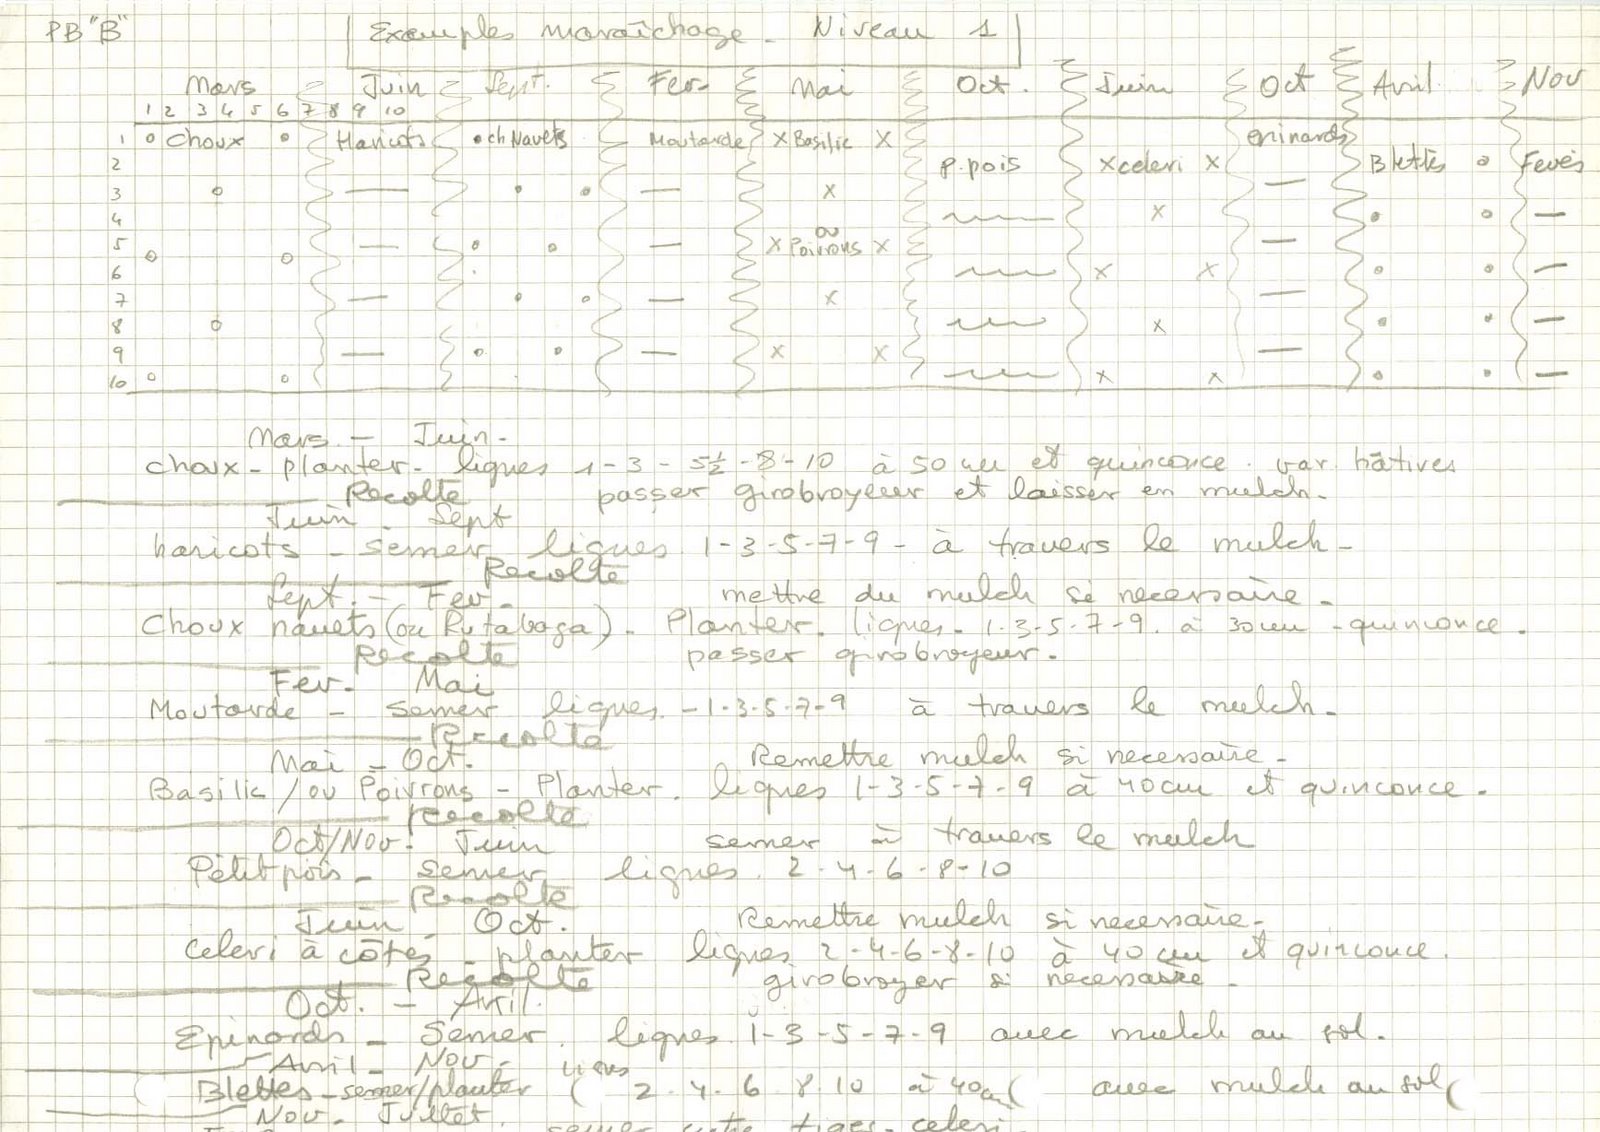 PB "B"
Exemples maraîchage - Niveau 1
Mars Juin Sept. Fev. Mai Oct. Juin Oct Avril Nov
1 2 3 4 5 6 7 8 9 10
1 Choux Haricots ch Navets Moutarde x Basilic x epinards
2 p. pois x celeri x Blettes Feves
3 x
4 x
ou
5 x Poivrons x
6 x x
7 x
8 x
9 x x
10 x x
Mars - Juin -
choux - planter - lignes 1 - 3 - 5½ - 8 - 10 à 50 cm et quinconce. var. hâtives
Recolte passer girobroyeur et laisser en mulch -
Juin - Sept
haricots - semer lignes 1-3-5-7-9 - à travers le mulch -
Recolte
Sept. - Fev - mettre du mulch si necessaire -
Choux navets (ou Rutabaga) - Planter. lignes - 1-3-5-7-9. à 30 cm - quinconce.
Recolte passer girobroyeur.
Fev - Mai
Moutarde - semer lignes - 1-3-5-7-9 à travers le mulch -
Recolte
Mai - Oct. Remettre mulch si necessaire -
Basilic / ou Poivrons - Planter. lignes 1-3-5-7-9 à 40 cm et quinconce.
Recolte
Oct/Nov - Juin semer à travers le mulch
Pétit pois - semer lignes. 2-4-6-8-10
Recolte
Juin - Oct. Remettre mulch si necessaire -
celeri à côtes - planter lignes 2-4-6-8-10 à 40 cm et quinconce.
Recolte girobroyer si necessaire -
Oct. - Avril.
Epinards - Semer. lignes. 1-3-5-7-9 avec mulch au sol.
Avril - Nov - lignes
Blettes - semer/planter ( 2. 4. 6 8. 10 à 40 cm ( avec mulch au sol (
Nov - Juillet.
semer entre tiges - celeri